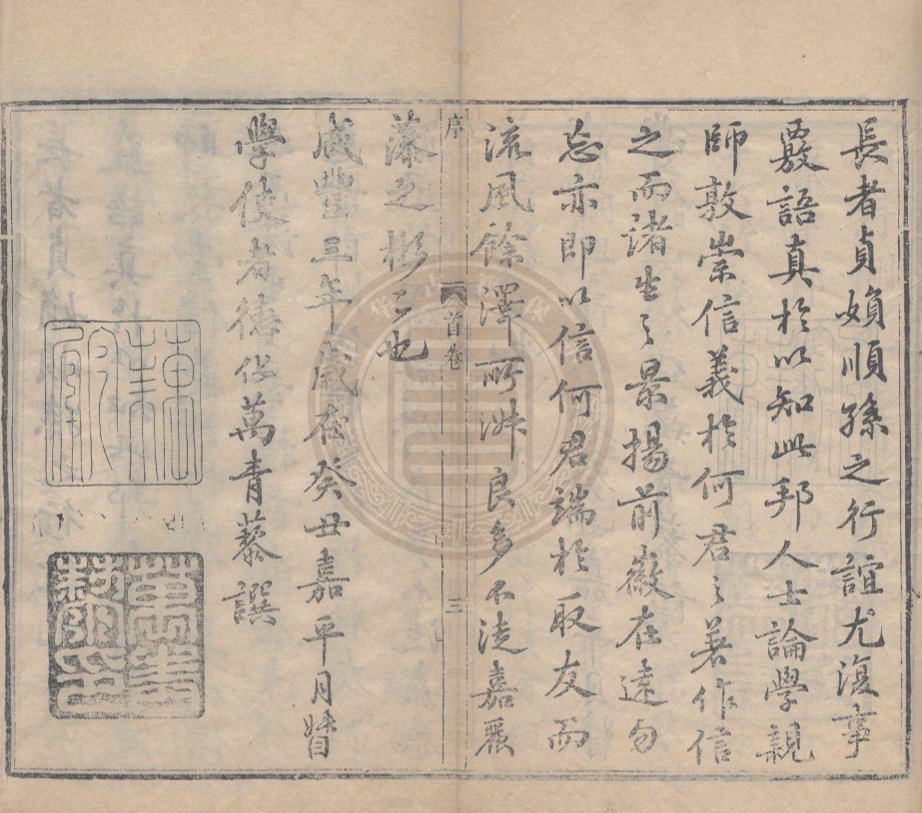 長者貞媍順孫之行誼尤復事
覈語真於以知此邦人士論學親
師敦崇信義於何君之著作信
之而諸生之景揚前徽在遠勿
忘亦即以信何君端於取友而
流風餘澤所淋良多不徒嘉麗
藻之彬〻也
咸豐三年歲在癸丑嘉平月督
學使者德化萬青藜譔
序
首卷
三
萬青藜印